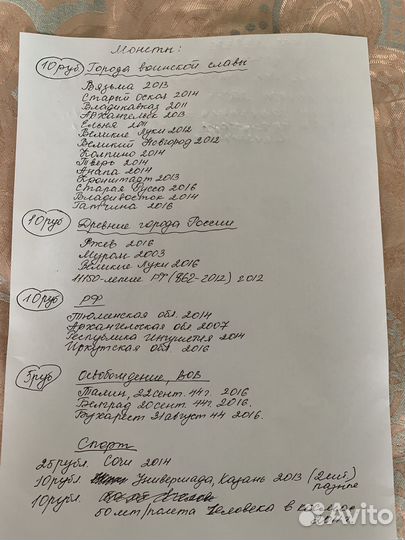 Монеты:
10 руб Города воинской славы
Вязьма 2013
Старый Оскол 2014
Владикавказ 2011
Архангельск 2013
Ельня 2011
Великие Луки 2012
Великий Новгород 2012
Колпино 2014
Тверь 2014
Анапа 2014
Кронштадт 2013
Старая Русса 2016
Владивосток 2014
Гатчина 2016
10 руб Древние города России
Ржев 2016
Муром 2003
Великие Луки 2016
1150-летие РГ (862-2012) 2012
10 руб РФ
Тюменская обл. 2014
Архангельская обл 2007
Республика Ингушетия 2014
Иркутская обл. 2016
5 руб Освобождение, ВОВ
Талин, 22 сент. 44 г. 2016
Белград 20 сент. 44 г. 2016.
Бухарест 31 август 44 2016.
Спорт
25 рубл. Сочи 2014
10 рубл. Универмада, Казань 2013 (2 шт)
разные
10 рубл.
50 лет/полета Человека в
Avito